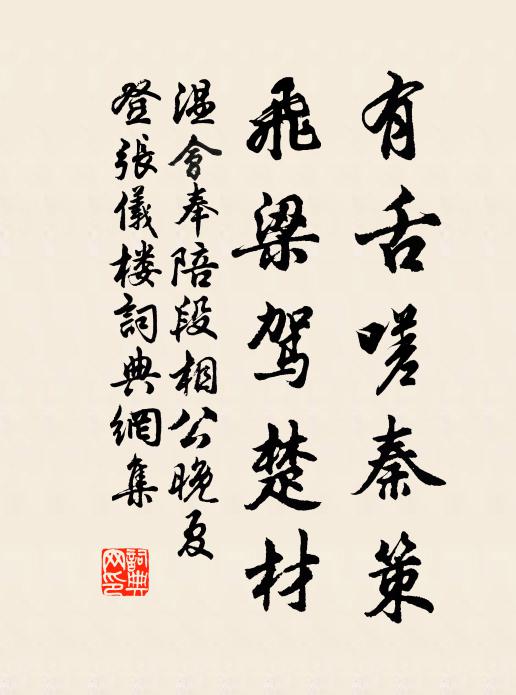 有舌嗟秦策
飛梁駕楚材
温會奉陪段相公晚夏
登張儀楼詞典網集
詞典
网印